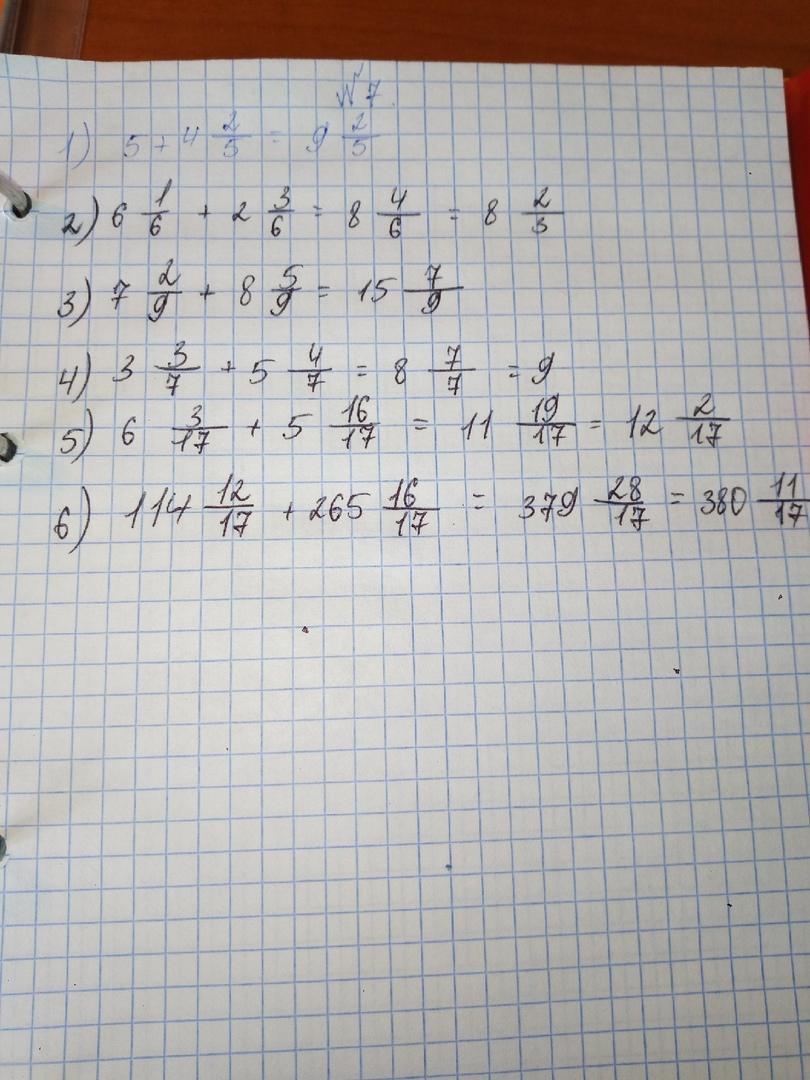 №7.
1) 5 + 4 2/5 = 9 2/5
2) 6 1/6 + 2 3/6 = 8 4/6 = 8 2/3
3) 7 2/9 + 8 5/9 = 15 7/9
4) 3 3/7 + 5 4/7 = 8 7/7 = 9
5) 6 3/17 + 5 16/17 = 11 19/17 = 12 2/17
6) 114 12/17 + 265 16/17 = 379 28/17 = 380 11/17